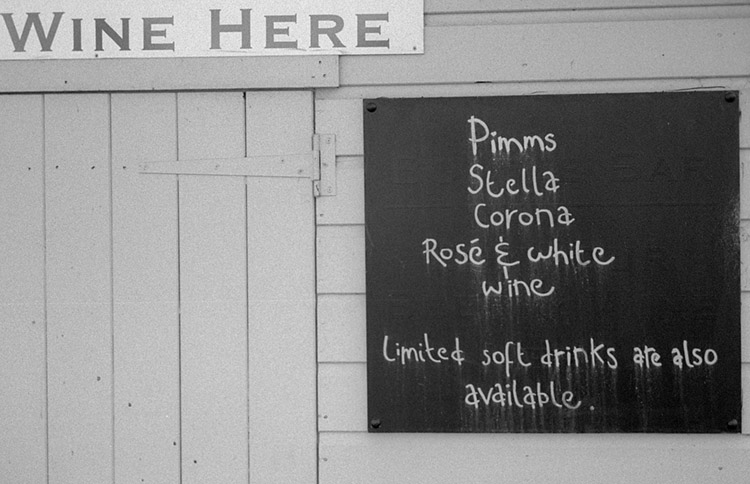 WINE HERE
Pimms
Stella
Corona
Rosé & white
wine
Limited soft drinks are also
available.